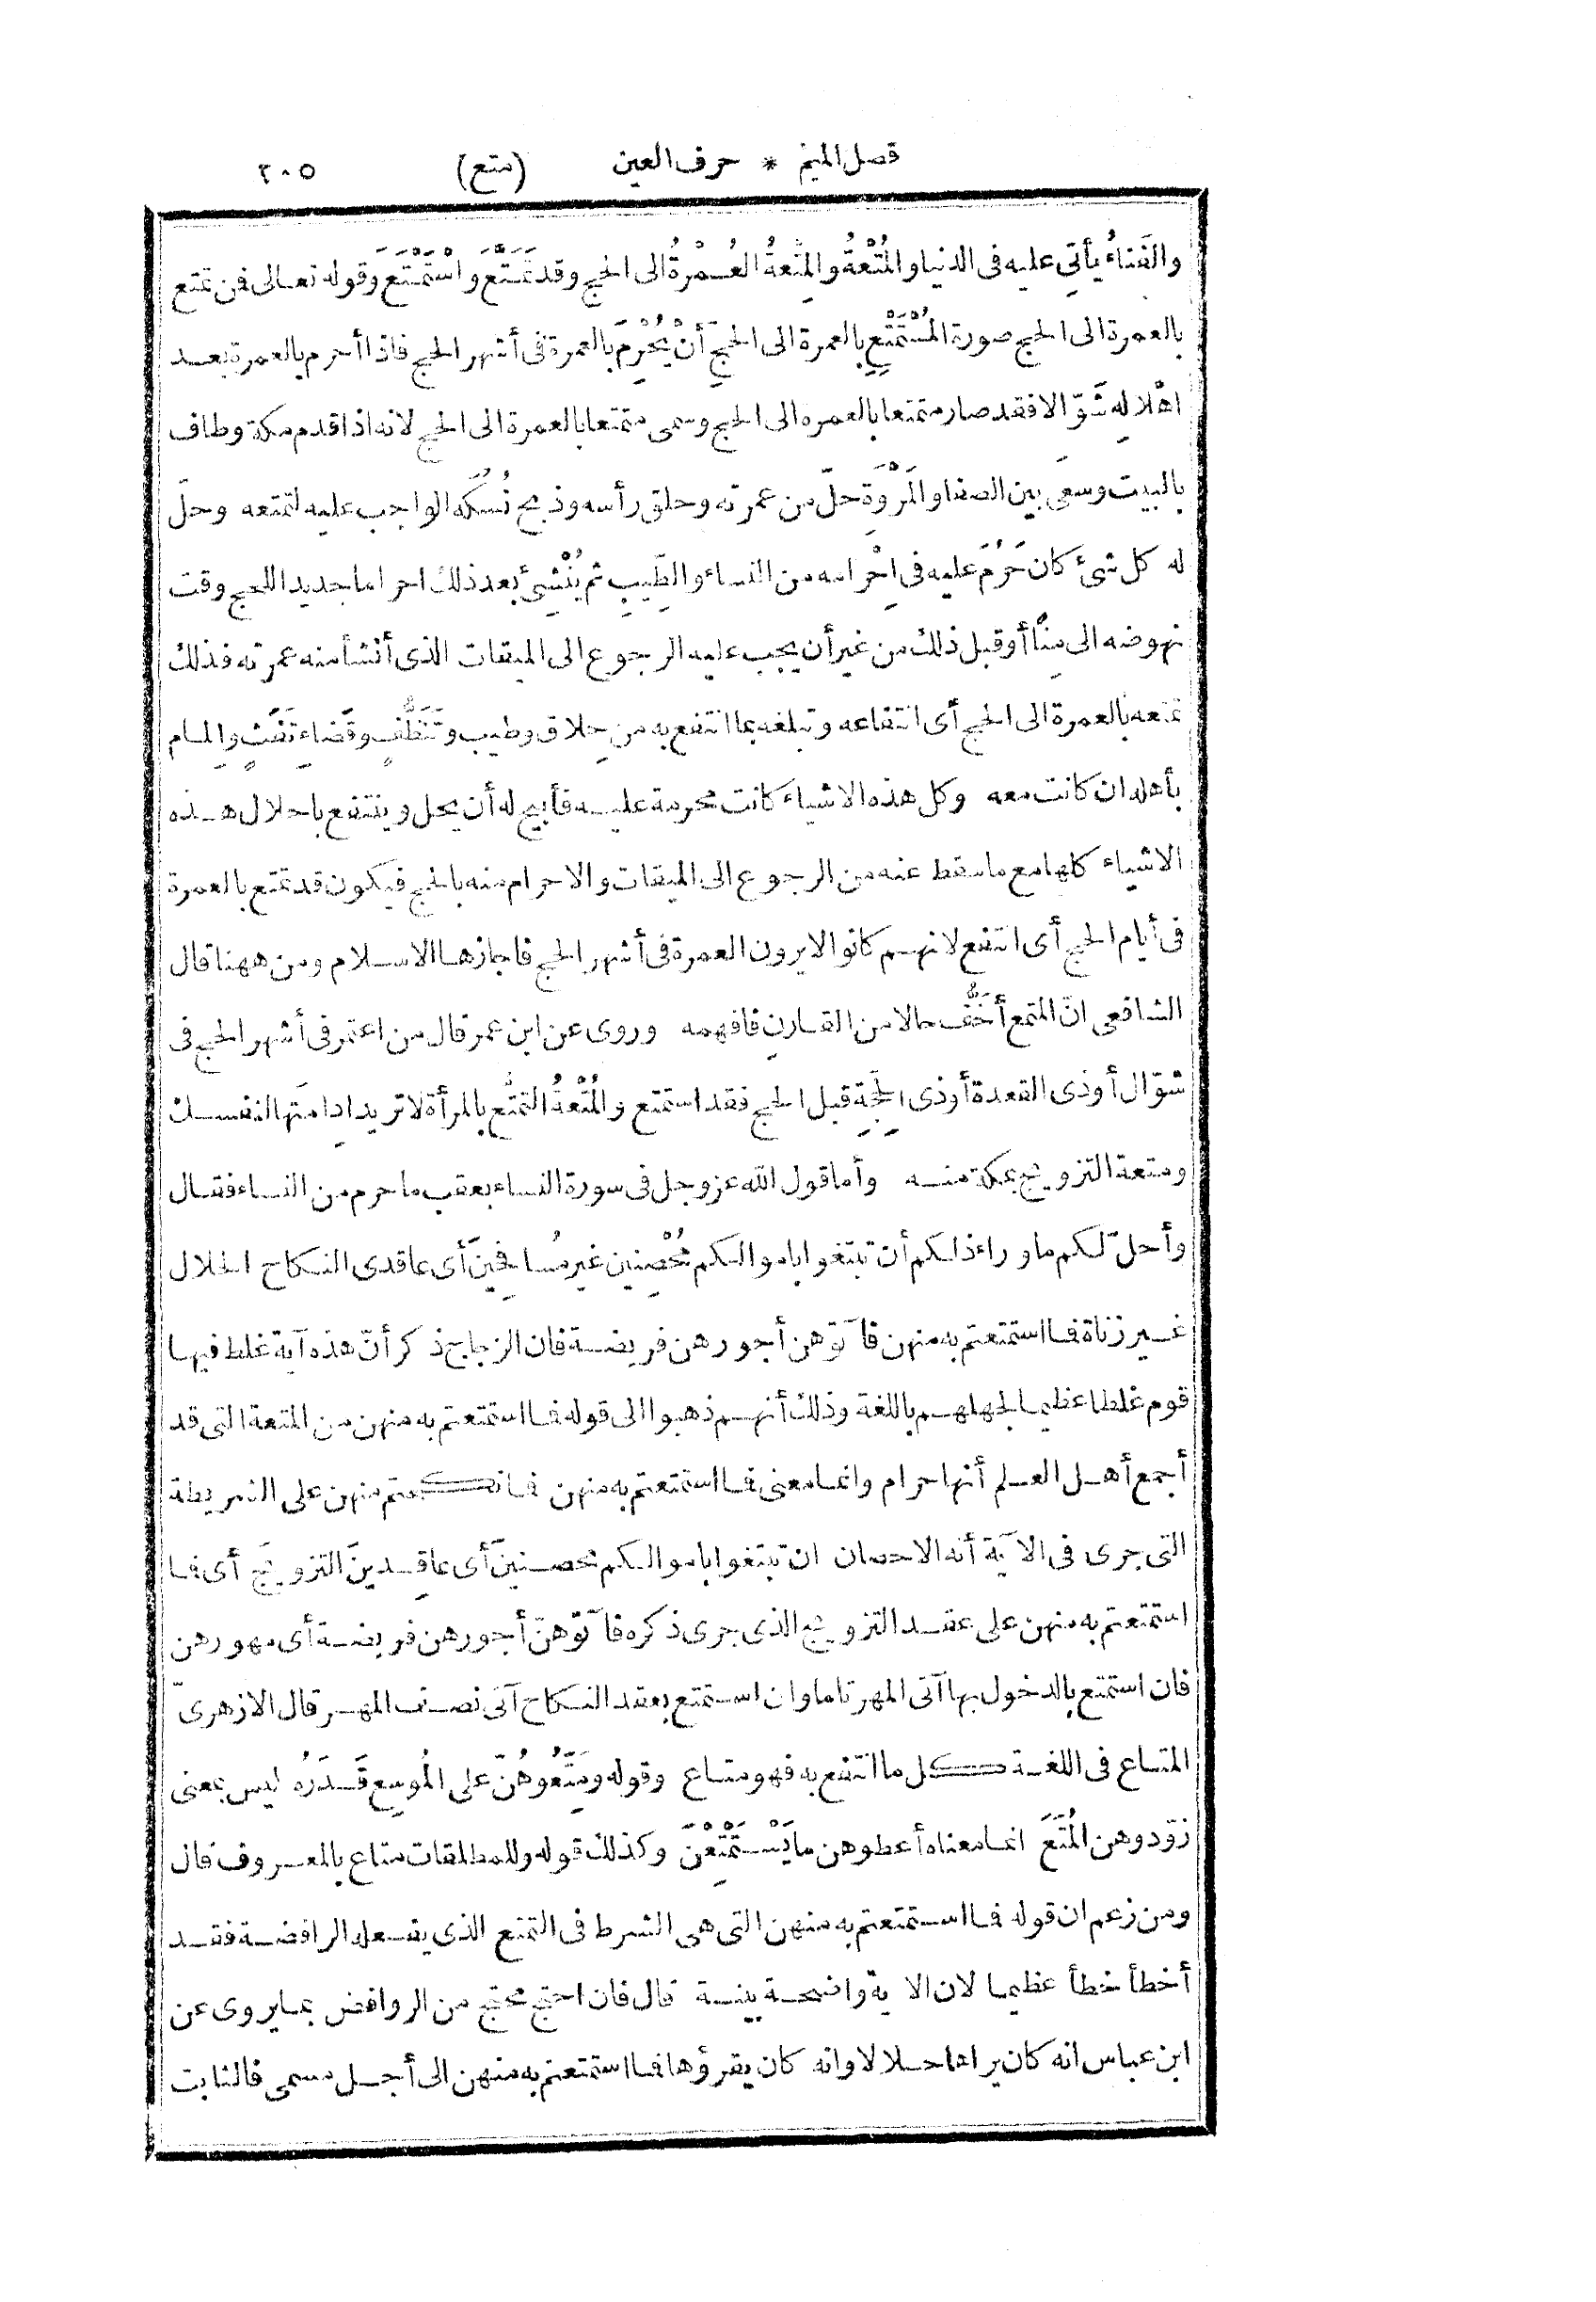 فصل الميم * حرف العين (متع) ٢٠٥
والفَناءُ يأتي عليه فى الدنيا والمُتْعةُ والمِتْعةُ العُـمْرةُ الى الحج وقد تَمَـتَّعَ واسْتَمْـتَعَ وقوله تعـالى فمن تمتع
بالعمرة الى الحج صورة المُسْتَمْتِعِ بالعمرة الى الحجِّ أنْ يُحْرِمَ بالعمرة فى أشهر الحج فاذا أحرم بالعمرة بعـد
اهْلالِه شَوّالا فقد صار متمتعا بالعمره الى الحج وسمى متمتعا بالعمرة الى الحج لانه اذا قدم مكة وطاف
بالبيت وسعَى بين الصفا والمَرْوَةِ حلّ من عمرته وحلق رأسه وذبح نُسُكَه الواجب عليه لتمتعه وحلّ
له كل شئ كان حَرُمَ عليه فى اِحْرامه من النساء والطِّيبِ ثم يُنْشِئُ بعد ذلك احراما جديدا للحج وقت
نهوضه الى مِنًا أو قبل ذلك من غير أن يجب عليه الرجوع الى الميقات الذى أنشأ منه عمرته فذلك
تمتعه بالعمرة الى الحج أى انتفاعه وتبلغه بما انتفع به من حِلاق وطيب وتَنَظُّفٍ وقَضاءِ تَفَثٍ والمِـام
بأهله ان كانت معه وكل هذه الاشياء كانت محرمة عليـه فأبيح له أن يحل وينتفع باحلال هـذه
الاشياء كلها مع ما سقط عنه من الرجوع الى الميقات والاحرام منه بالحج فيكون قد تمتع بالعمرة
فى أيام الحج أى انتفع لانهـم كانوا لا يرون العمرة فى أشهر الحج فاجازهـا الاسـلام ومن ههنا قال
الشافعى انّ المتمتع أَخَفُّ حالا من القـارِنِ فافهمه وروى عن ابن عمر قال من اعتمر فى أشهر الحج فى
شوّال أو ذى القعدة أو ذى الحِجّةِ قبل الحج فقد استمتع والمُتْعةُ التمتُّع بالمرأة لا تريد ادِامَتَها لنفسـك
ومتعة التزويج بمكة منـه وأما قول الله عز وجل فى سورة النساء بعقب ما حرم من النساء فقـال
وأحلّ لكم ما وراء ذلكم أن تبتغوا باموالكم مُحْصِنين غير مُسافِحِينَ أى عاقدى النـكاح الحلال
غـير زناة فما استمتعتم به منهن فآتوّهن أجورهن فريضـة فان الزجاج ذكر أنّ هذه آية غلط فيهـا
قوم غلطا عظيما لجهلهـم باللغة وذلك أنهـم ذهبوا الى قوله فما استمتعتم به منهن من المتعة التى قد
أجمع أهـل العـلم أنها حرام وانما معنى فما استمتعتم به منهن فما نكحتم منهن على الشريطة
التى جرى فى الآية أنه الاحصان ان تبتغوا باموالكم محصـنينَ أى عاقِـدينَ التزويجَ أى فما
استمتعتم به منهن على عقـد التزويج الذى جرى ذكره فآتوّهنّ أجورهن فريضـة أى مهورهن
فان استمتع بالدخول بها آتى المهر تاما وان استمتع بعقد النـكاح آتى نصـف المهـر قال الازهرىّ
المتـاع فى اللغـة كل ما انتفع به فهو متـاع وقوله ومَتِّعُوهُنّ على المُوسِعِ قَـدَرُه ليس بمعنى
زوّدوهن المُتَعَ انمـا معناه أعطوهن ما يَسْـتَمْتِعْنَ وكذلك قوله وللمطلقات متاع بالمعـروف قال
ومن زعم ان قوله فما استمتعتم به منهن التى هى الشرط فى التمتع الذى يفـعله الرافضـة فقـد
أخطأ خطأ عظيما لان الاية واضحـة بينـة قال فان احتج محتج من الروافض بمـا يروى عن
ابن عباس انه كان يراها حـلالا وانه كان يقرؤها فما استمتعتم به منهن الى أجـل مسمى فالثابت